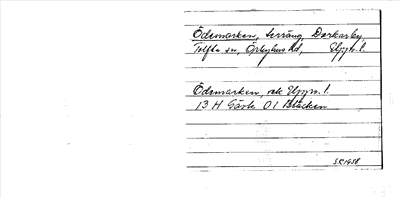 Ödemarken, terräng, Darkarby,
Tolfta sn, Örbyhus hd, Upps. l.
Ödemarken, ek Upps. l.
13 H Gävle 0 I Bläcken
SR 1958